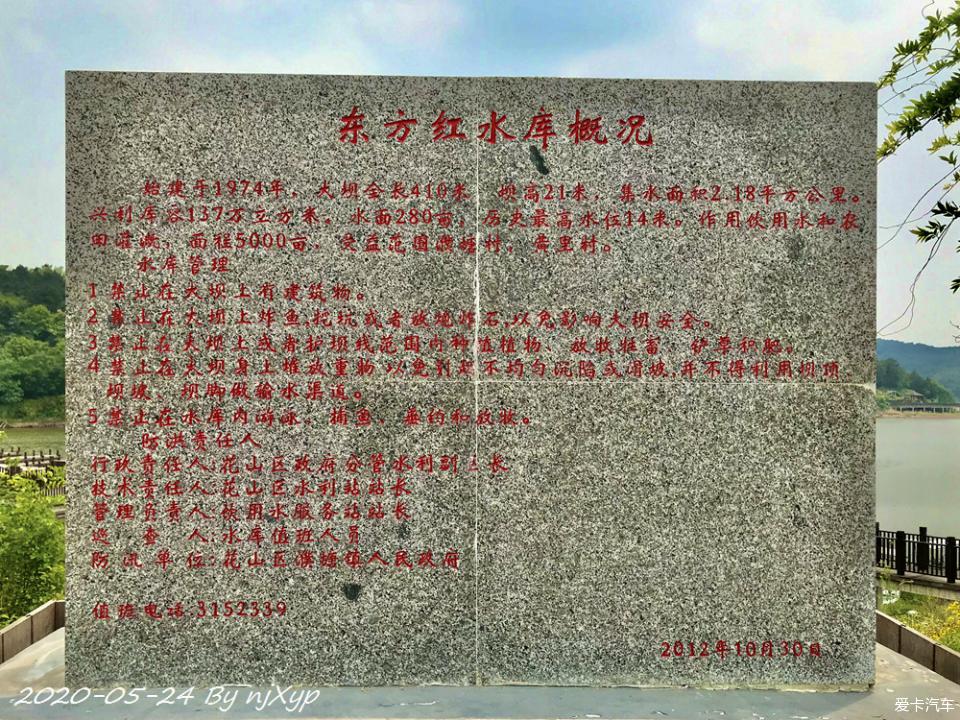 东方红水库概况
始建于1974年，大坝全长410米，坝高21米，集水面积2.18平方公里。
兴利库容137万立方米。水面280亩，历史最高水位14米。作用饮用水和农
田灌溉，面积5000亩。受益范围濮塘村，黄里村。
水库管理
1 禁止在大坝上有建筑物。
2 禁止在大坝上炸鱼,挖坑或者放炮炸石,以免影响大坝安全。
3 禁止在大坝上或者护坝线范围内种植植物、放牧牲畜、铲草积肥。
4 禁止在大坝身上堆放重物,以免引起不均匀沉陷或滑坡,并不得利用坝顶
坝坡、坝脚做输水渠道。
5 禁止在水库内游泳、捕鱼、垂钓和放牧。
防洪责任人
行政责任人:花山区政府分管水利副区长
技术责任人:花山区水利站站长
管理负责人:饮用水服务站站长
巡 查 人:水库值班人员
防汛单位:花山区濮塘镇人民政府
值班电话:3152339
2012年10月30日
2020-05-24 By njXyp
爱卡汽车